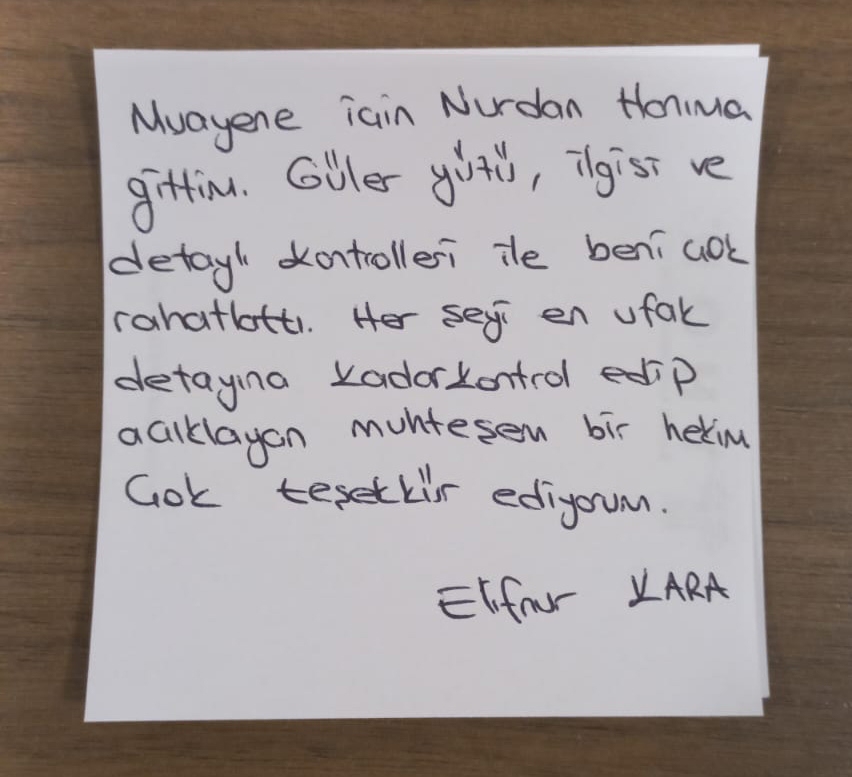 Muayene için Nurdan Hanıma
gittim. Güler yüzü, ilgisi ve
detaylı kontrolleri ile beni çok
rahatlattı. Her şeyi en ufak
detayına kadar kontrol edip
açıklayan muhteşem bir hekim
Çok teşekkür ediyorum.
Elifnur KARA